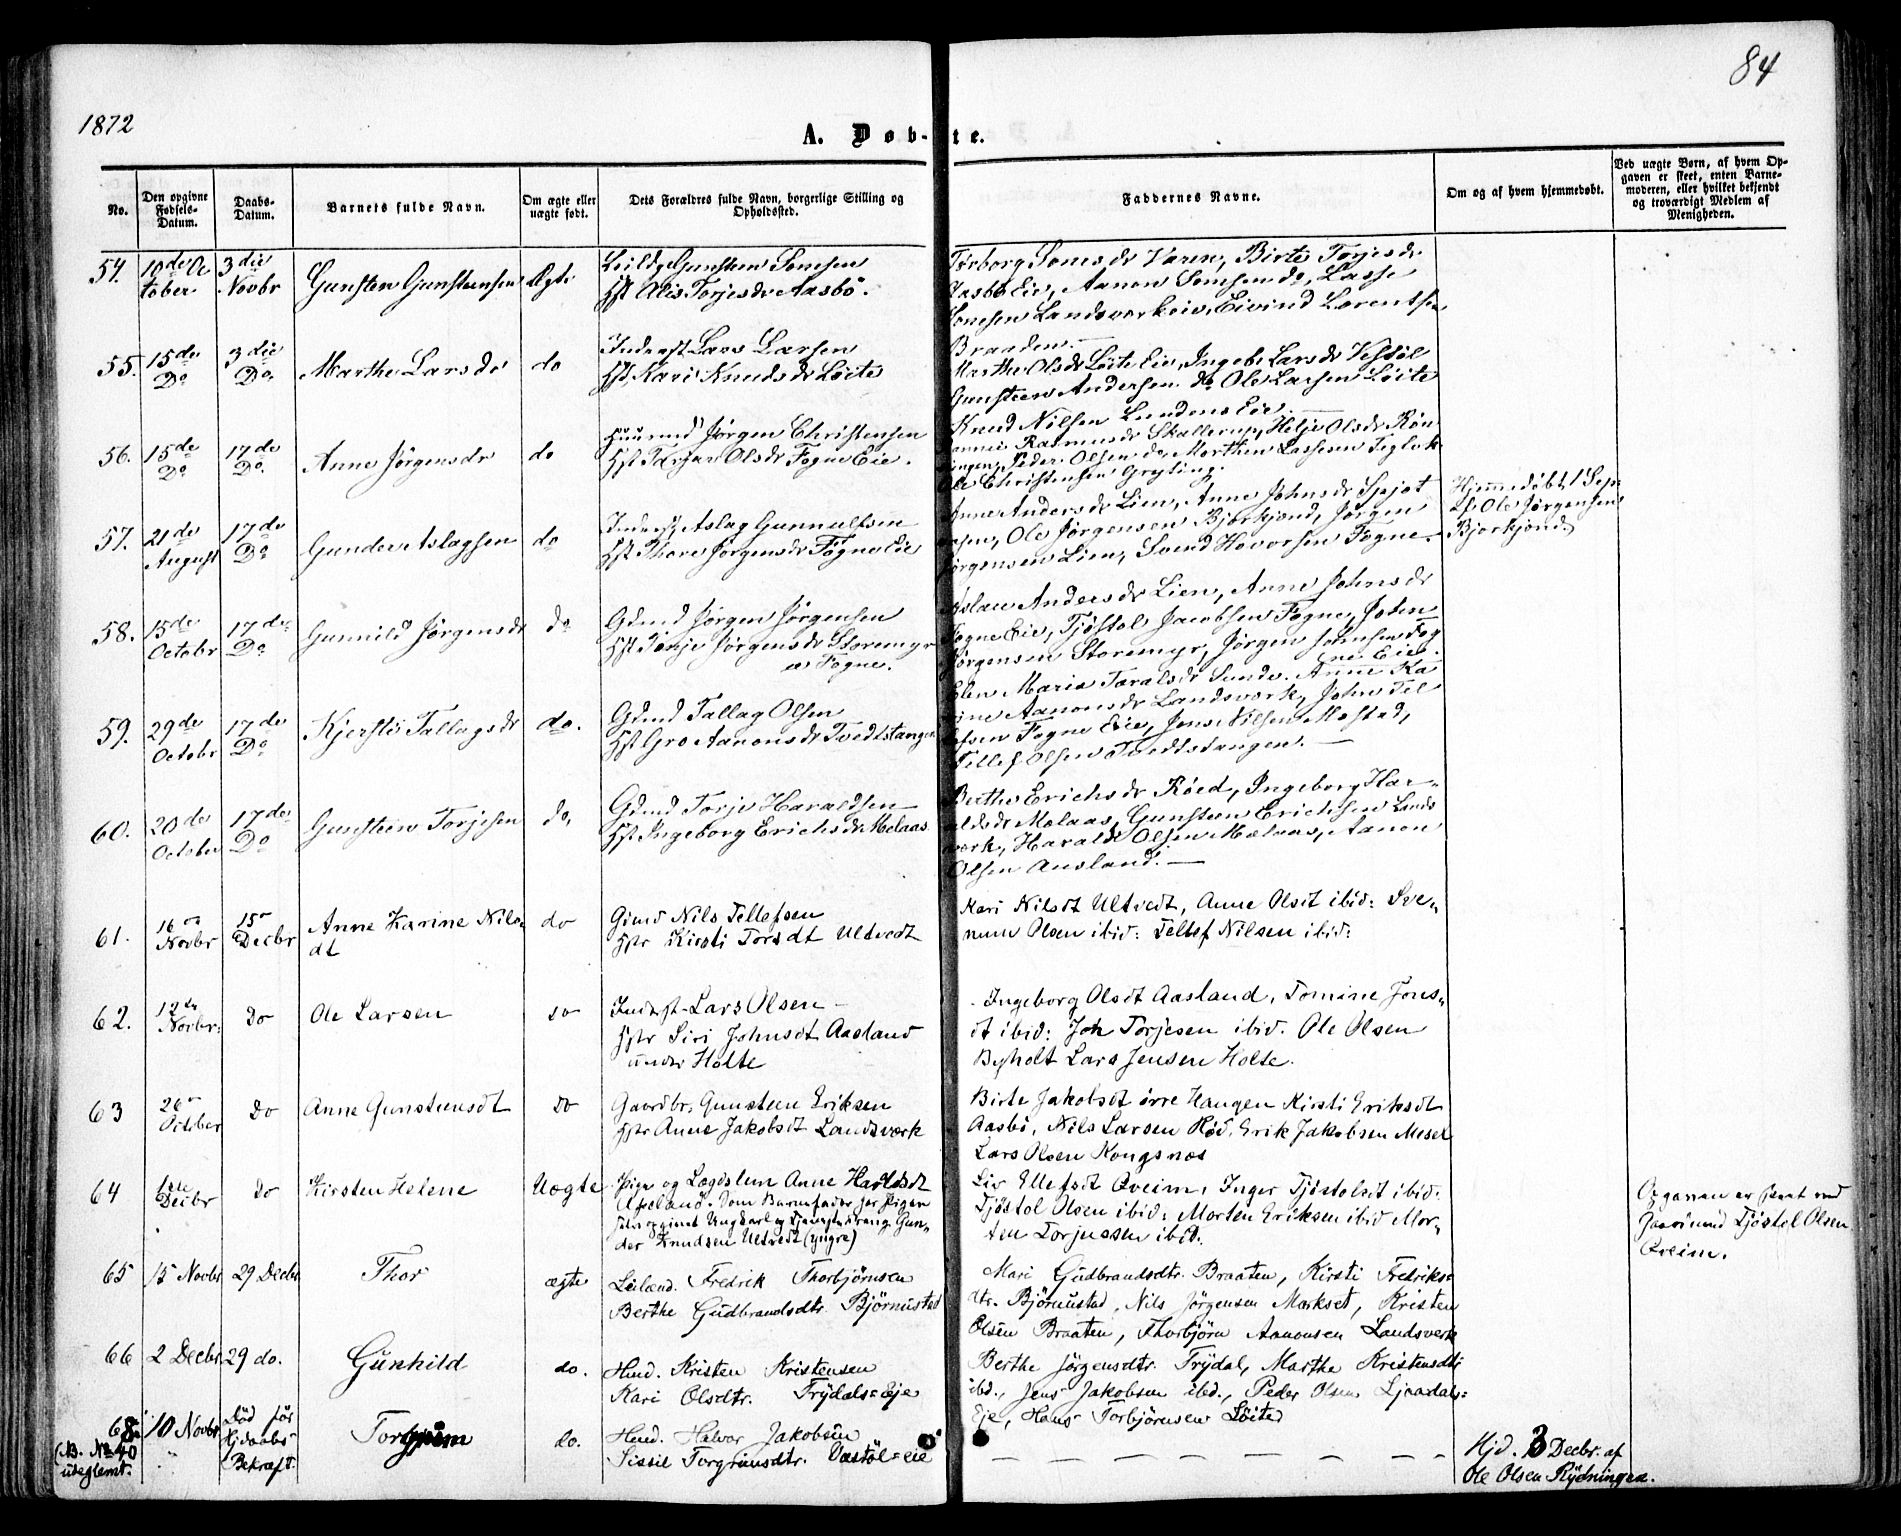 84
1872
A. Døb-te.
No.
Den opgivne Fødsels-Datum.
Daabs-Datum.
Barnets fulde Navn.
Om ægte eller uægte født.
Dets Forældres fulde Navn, borgerlige Stilling og Opholdssted.
Faddernes Navne.
Om og af hvem hjemmedøbt.
Ved uægte Børn, af hvem Opgaven er skeet, enten Barnemoderen, eller hvilket bekjendt og troværdigt Medlem af Menigheden.
54. 10de October 3die Novbr Gunsten Gunstensen Ægte
Gunsten Somsen
Hst Alis Torjesdr Aasbö.
Torborg Somsdr Varen, Birte Torjesdr
Aasbö Eie, Aanon Somsen do, Lasse
Somsen Landsverkeie, Eivind Lorentsen
Braaden.
55. 15de Do 3die Do Marthe Larsdr do
Inderst Lars Larsen
Hst Kari Knudsdr Löite
Marthe Olsdr Löite Eie, Ingeb. Larsdr Vestöl
Gunsteen Andersen do Ole Larsen Löite
Knud Nilsen Lundens Eie.
56. 15de Do 17de Do Anne Jörgensdr do
Huusmd Jörgen Christensen
Hst Olsdr Fogne Eie.
Rasmusdr Skallerup, Helje Olsdr Rön
ingen, Peder Olsen do, Morthen Lassesen
Ole Christensen Gryting.
57. 21de August 17de Do Gunder Aslagsen do
Inderst Aslag Gunnulfsen
Hst Thore Jörgensdr Fogne Eie
Anne Andersdr Lien, Anne Johnsdr
Ole Jörgensen Bjorkjond, Jörgen
Jörgensen Lien, Svend Hovorsen Fogne.
Hjemmedöbt 1 Sep
Ole Jörgensen
Bjorkjond.
58. 15de Octobr 17de Do Gunnild Jörgensdr do
Gdmd Jörgen Jörgensen
Hst Tarje Jörgensdr Storemyr
Fogne.
Aslau Andersdr Lien, Anne Johnsdr
Fogne Eie, Tjöstol Jacobsen Fogne, John
Jörgensen Storemyr, Jörgen Johnsen Fog
ne Eie.
59. 29de Octobr 17de Do Kjersti Tallagsdr do.
Gdmd Tallag Olsen
Hst Gro Aanonsdr Tvedtstangen
Elen Maria Taralsdr Sunde. Anne Ka
rine Aanonsdr Landsverk, John Tel
lefsen Fogne Eie, Jens Nilsen Mostad,
Tellef Olsen Tvedtstangen.
60. 20de October 17de Do Gunsteen Torjesen do,
Gdmd Torje Haraldsen
Hst Ingeborg Erichsdr Melaas
Berthe Erichsdr Röed, Ingeborg Har-
aldsdr Mælaas, Gunsten Erichsen Lands
verk, Harald Olsen Mælaas, Aanon
Olsen Ausland.
61. 16 Novbr 15 Decbr Anne Karine Nils
dt do
Gmd Nils Tellefsen
Hstr Kirsti Torsdt Ultvedt
Kari Nilsdt Ultvedt, Anne Olsdt ibid: Sve-
nun Olsen ibid: Tellef Nilsen ibid:
62. 12te Novbr: do Ole Larsen do
Inderst Lars Olsen
Hstr Siri Johnsdt Aasland
under Holte
Ingeborg Olsdt Aasland, Tomine Jons-
dt ibid: Joh Torjesen ibid. Ole Olsen
Byholt Lars Jensen Holte.
63 26 October do Anne Gunsteensdt do
Gaardbr. Gunsteen Eriksen
Hstr Anne Jakobsdt Landsværk
Birte Jakobsdt örre Haugen Kirsti Eriksdt
Aasbö, Nils Larsen Röd, Erik Jakobsen Mesel
Lars Olsen Kongsnæs
64 1ste Decbr do Kirsten Helene Uægte
Pige og Lægdslem Anne Harldsdt
Ufseland. Som Barnefader har Pigen
selv opgivet Ungkarl og Tjenestedreng Gun-
der Knudsen Ultvedt (yngre)
Liv Ellefsdt Øveim, Inger Tjöstolsdt ibid:
Tjöstol Olsen ibid: Morten Eriksen ibid Mor-
ten Torjussen ibid:
Opgaven er skeet ved
Gaardmand Tjöstol Olsen
Øveim.
65 15 Novbr 29 Decbr Thor ægte
Leilænd. Fredrik Thorbjörnsen
Berthe Gudbrandsdtr. Björnustad
Mari Gudbrandsdtr. Braaten, Kirsti Fredriks-
dtr. Björnustad, Nils Jörgensen Markset, Kristen
Olsen Braaten, Thorbjörn Aanonsen Landsverk
66 2 Decbr. 29 do. Gunhild do.
Hmd. Kristen Kristensen
Kari Olsdtr. Frydals-Eje
Berthe Jörgensdtr. Frydal, Marthe Kristensdtr
ibd., Jens Jakobsen ibd., Peder Olsen Ljaadals-
Eje, Hans Torbjörnsen Löite
68 10 Novbr Död för Hjdaabs-Bekræft. Torgrim do.
(B. No 40 uteglemt.
Hmd. Halvor Jakobsen
Sissil Torgrimsdtr. Væstöl-eie
Hjd. 3 Decbr. af
Ole Olsen Rydningen.